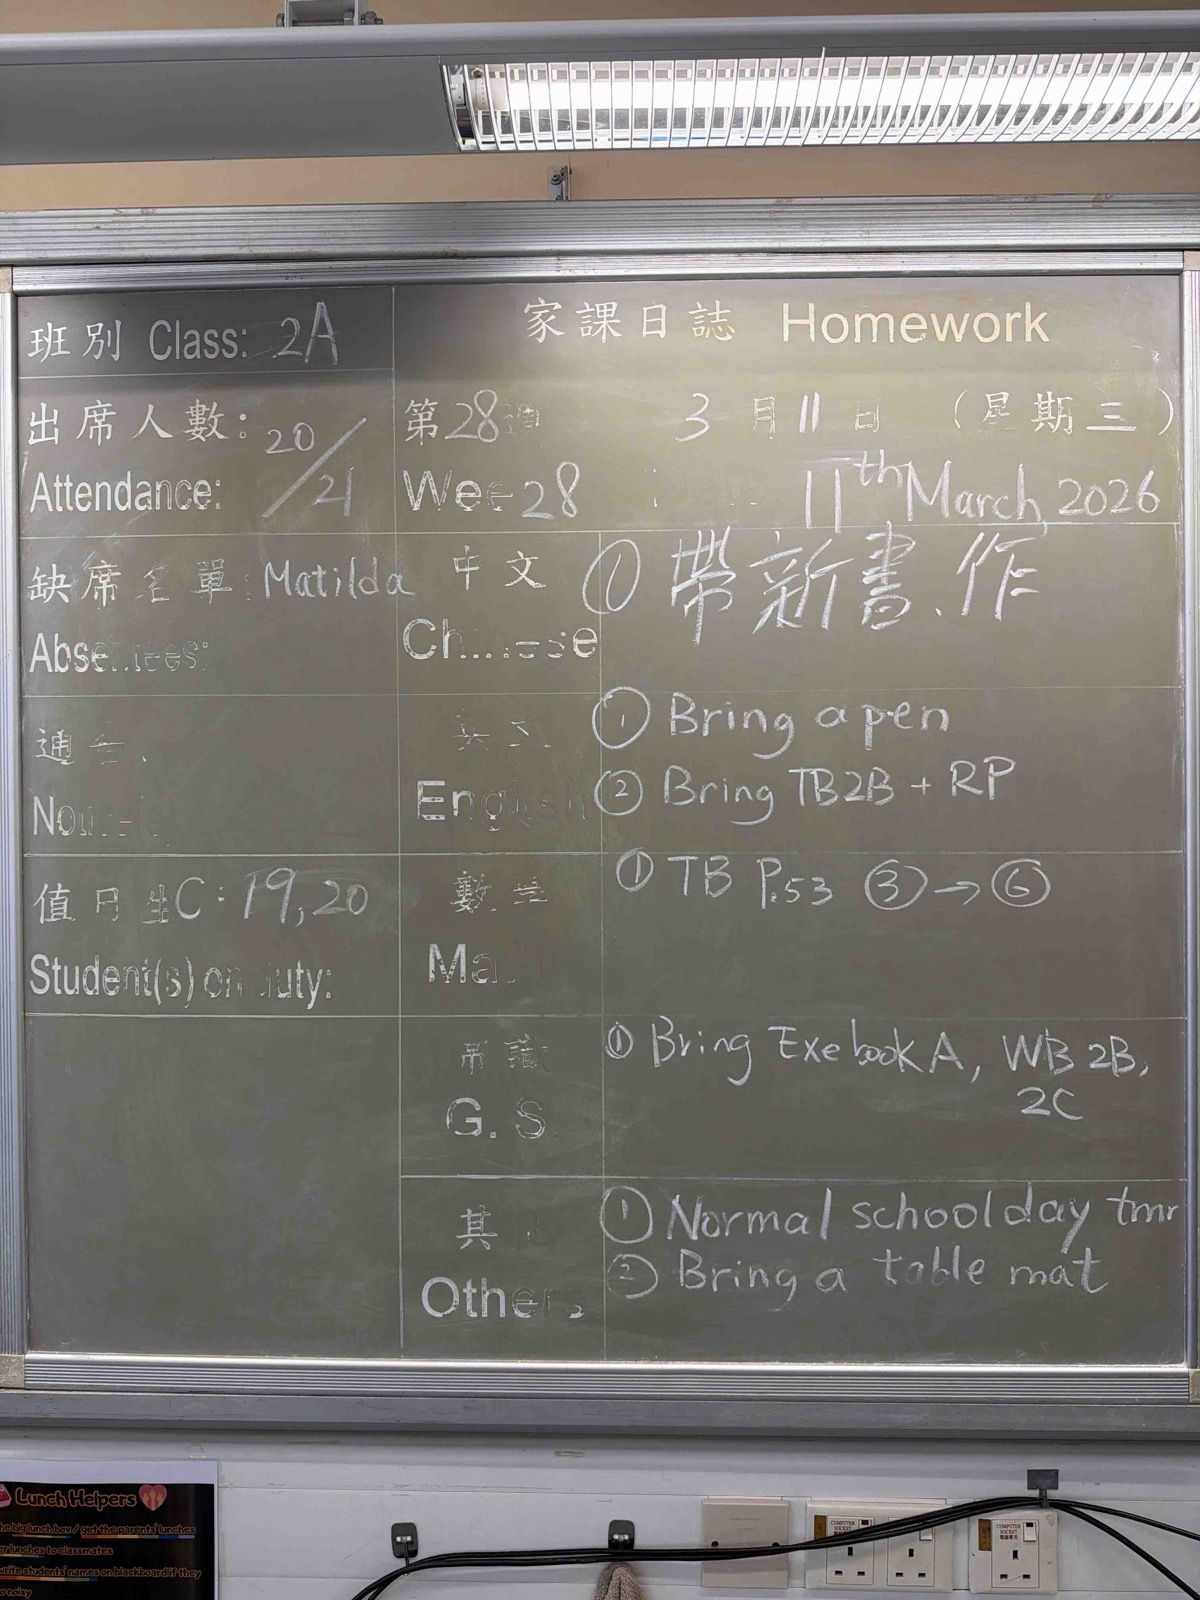 班別 Class: 2A
家課日誌 Homework
出席人數: 20/21
Attendance:
第28週 3月11日 (星期三)
Week 28 11th March, 2026
缺席名單: Matilda
Absentees:
中文
Chinese
① 帶新書、作
通告:
英文
English
① Bring a pen
② Bring TB2B + RP
值日生C: 19, 20
Student(s) on duty:
數學
Maths
① TB P.53 ③→⑥
常識
G.S
① Bring Exe book A, WB 2B,
2C
其他
Others
① Normal school day tmr
② Bring a table mat
Lunch Helpers
big lunch box / get the parents' lunches
lunches to classmates
write students' names on blackboard if they
noisy
COMPUTER SOCKET
COMPUTER SOCKET